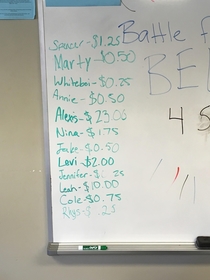 Spencer - $1.25
Marty - $0.50
Whiteboi - $0.25
Annie - $0.50
Alexis - $23.05
Nina - $1.75
Jake - $0.50
Lavi - $2.00
Jennifer - $ 25
Leah - $10.00
Cole - $0.75
Rhys - $ 25
Battle f
BE
4 S